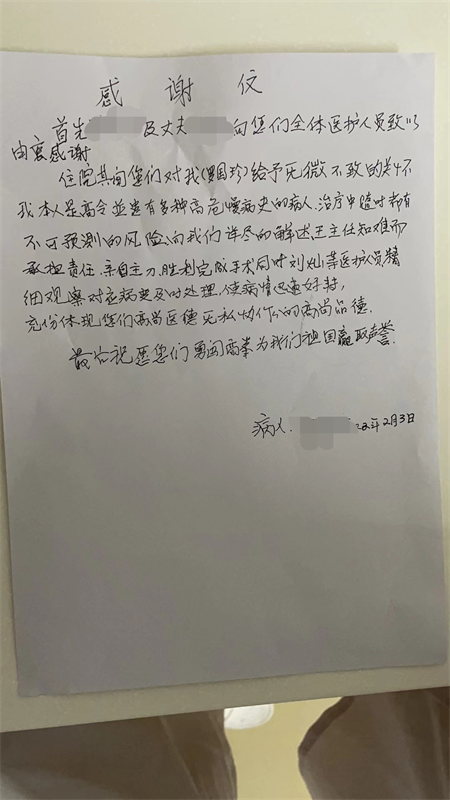 感谢位
首先 及丈夫 向您们全体医护人员致以
由衷感谢
住院其间您们对我(国珍)给予无微不致的关怀
我本人是高令並患有多种高危慢病史的病人,治疗中随时都有
不可预测的风险,向我们详尽的解述,王主任知难而
承担责任,亲自主刀,胜利完成手术同时刘灿等医护人员精
细观察对症病变及时处理,使病情迅速好转,
充份体现您们高尚医德无私协作的高尚品德.
最后祝愿您们勇闯两奉为我们祖国赢取声誉.
病人. 22年2月3日